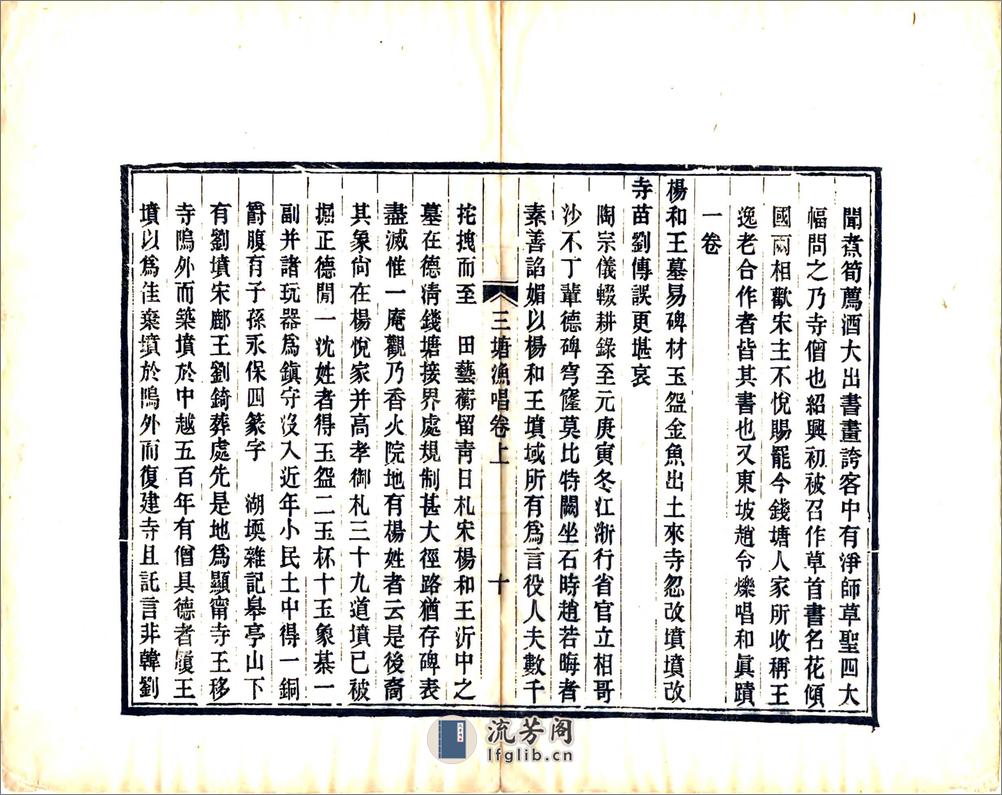 聞煮筍薦酒大出書畫誇客中有淨師草聖四大
幅問之乃寺僧也紹興初被召作草首書名花傾
國兩相歡宋主不悅賜罷今錢塘人家所收稱王
逸老合作者皆其書也又東坡趙令爍唱和眞蹟
一卷
楊和王墓易碑材玉盌金魚出土來寺忽改墳墳改
寺苗劉傳誤更堪哀
陶宗儀輟耕錄至元庚寅冬江浙行省官立相哥
沙不丁輩德碑穹窿莫比特闕坐石時趙若晦者
素善諂媚以楊和王墳域所有爲言役人夫數千
三塘漁唱卷上
十
挓拽而至 田藝蘅留靑日札宋楊和王沂中之
墓在德淸錢塘接界處規制甚大徑路猶存碑表
盡滅惟一庵觀乃香火院地有楊姓者云是後裔
其象尙在楊悅家并高孝御札三十九道墳已被
掘正德閒一沈姓者得玉盌二玉杯十玉象棊一
副并諸玩器爲鎭守沒入近年小民土中得一銅
爵腹有子孫永保四篆字 湖壖雜記皋亭山下
有劉墳宋鄜王劉錡葬處先是地爲顯甯寺王移
寺隖外而築墳於中越五百年有僧具德者履王
墳以爲佳棄墳於隖外而復建寺且託言非韓劉
流芳阁
lfglib.cn